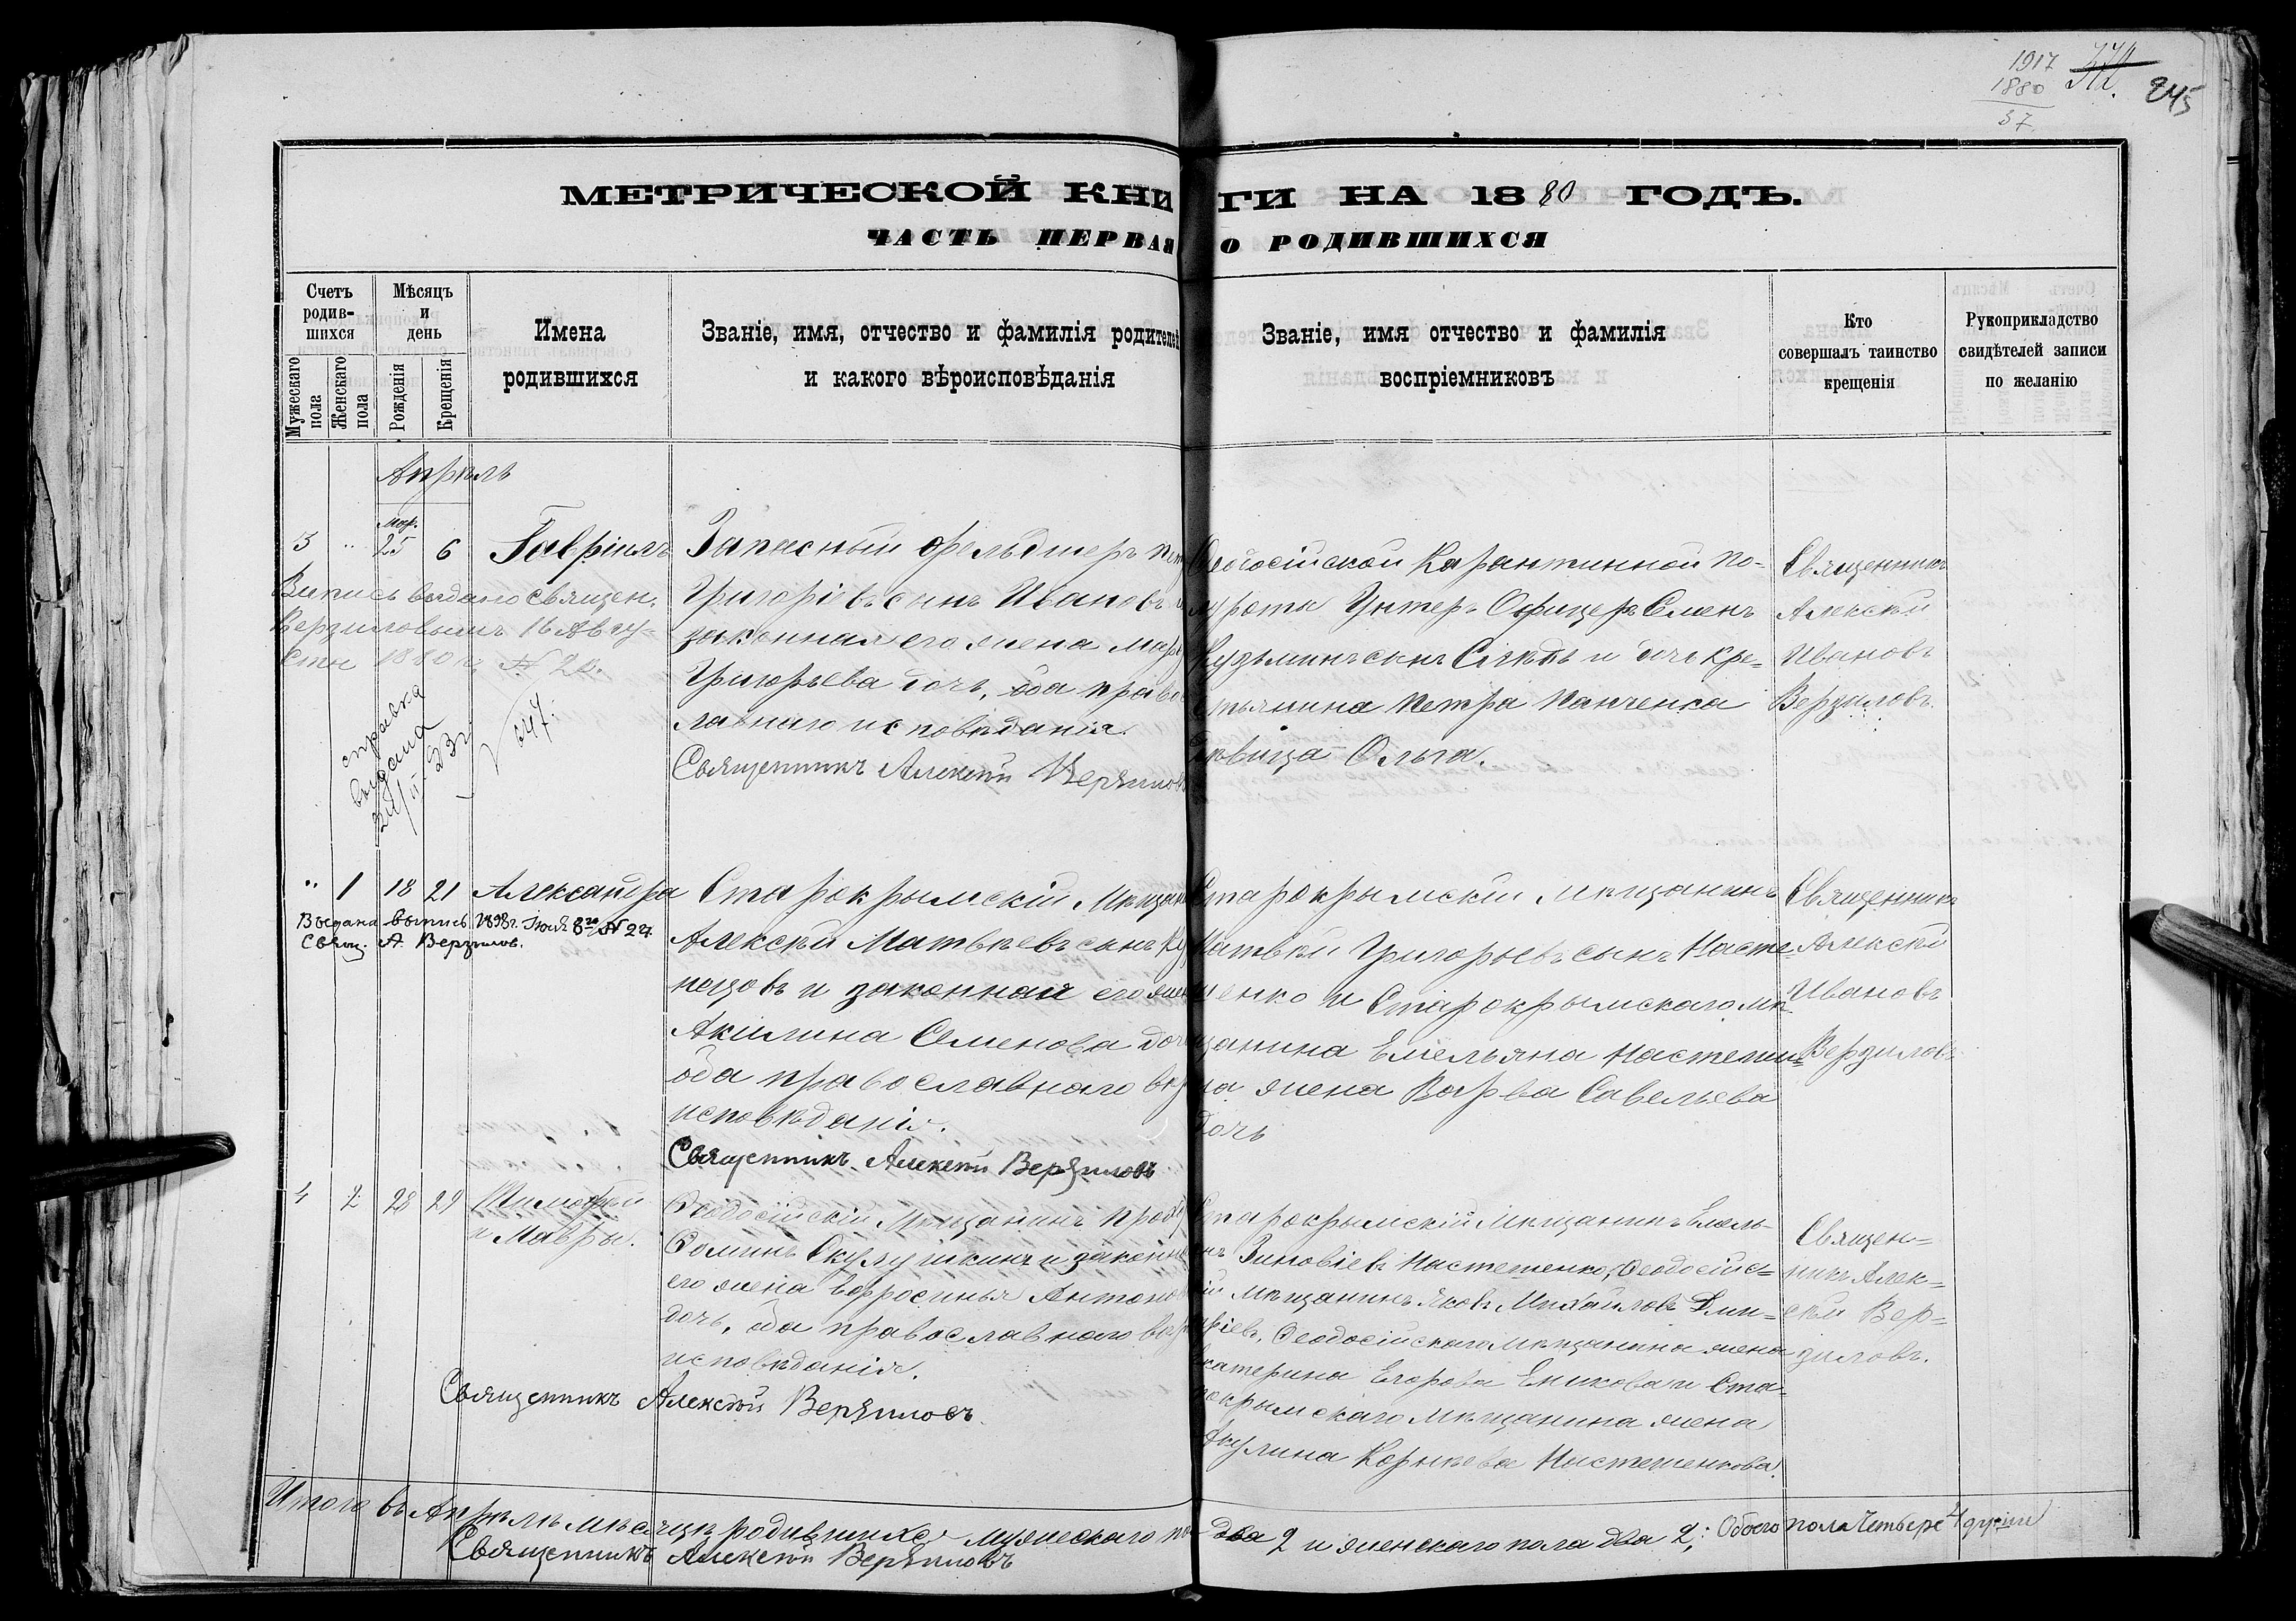 1917
1880
37
245
МЕТРИЧЕСКОЙ КНИГИ НА 1880 ГОДЪ.
ЧАСТЬ ПЕРВАЯ О РОДИВШИХСЯ
Счетъ родив-шихся
Мужескаго пола
Женскаго пола
Мѣсяцъ и день
Рожденія
Крещенія
Имена родившихся
Званіе, имя, отчество и фамилія родителей
и какого вѣроисповѣданія
Званіе, имя отчество и фамилія
воспріемниковъ
Кто
совершалъ таинство
крещенія
Рукоприкладство
свидѣтелей записи
по желанію
Апрѣль
Мар.
3 " 25 6 Гавріилъ
Запасный фельдшеръ
Григоріевъ сынъ Ивановъ
законная его жена
Григорьева дочь, оба право
лавнаго исповѣданія.
Священникъ Алексѣй Верзиловъ
Ѳеодосійской Карантинной по-
луроты Унтеръ Офицеръ Семенъ
Кузьминъ сынъ и кре-
стьянина Петра Панченка
девица Ольга.
Священникъ
Алексѣй
Ивановъ
Верзиловъ.
Выпись выдана Священ.
Верзиловымъ 16 Авгу-
ста 1880 г. № 20.
справка
выдана
23 г.
" 1 18 21 Александра
Выдана выпись 1898 г. Іюля 8го № 27.
Свящ. А. Верзилов.
Старокрымскій Мѣщан
Алексѣй Матвѣевъ сынъ
нецовъ и законная его жен
Акилина Семенова доч
оба православнаго
исповѣданія.
Священникъ Алексѣй Верзиловъ
Старокрымскій мѣщанинъ
Матвѣй Григорьевъ сынъ Насте-
ненко и Старокрымскаго мѣ-
щанина Емельяна Настешен-
ка жена Варва Савельева
дочь
Священникъ
Алексѣй
Ивановъ
Верзиловъ
4 2 28 29 Тимофей
и Мавры.
Ѳеодосійскій Мѣщанинъ
и законна
его жена Ефросинья Антоно
дочь, оба православнаго
исповѣданія.
Священникъ Алексѣй Верзиловъ
Старокрымскій Мѣщанинъ Емель-
янъ Зиновіевъ Настешенко, Ѳеодосійс-
кій Мѣщанинъ Яковъ Михайловъ Дми-
тріевъ, Ѳеодосійскаго Мѣщанина жена
Екатерина Егорова и Ста-
рокрымскаго Мѣщанина жена
Акулина Корнѣева Настешенкова.
Священ-
никъ Алек-
сѣй Вер-
зиловъ.
Итого въ Апрѣлѣ мѣсяцѣ родившихся мужескаго по два 2 и женскаго пола два 2; Обоего пола Четыре 4 души
Священникъ Алексѣй Верзиловъ